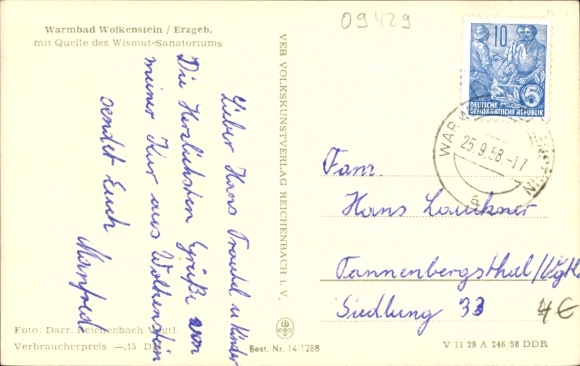 Warmbad Wolkenstein / Erzgeb.
mit Quelle des Wismut-Sanatoriums
09429
Lieber Hans Traudel u Kinder
Die Herzlichsten Grüße von
meiner Kur aus Wolkenstein
sendet Euch
Manfred
VEB VOLKSKUNSTVERLAG REICHENBACH I. V.
10
5
DEUTSCHE
DEMOKRATISCHE REPUBLIK
25.9.58.-17
Fam.
Hans Lauckner
Tannenbergsthal/Vgtl
Siedlung 33
4€
Foto: Darr, Reichenbach Vogtl.
Verbraucherpreis —,15 D
Best. Nr. 14 1288
V 11 28 A 246/58 DDR